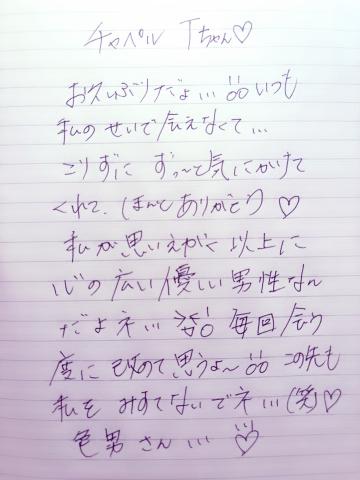 チャペル Tちゃん♡
お久しぶりだよ… いつも
私のせいで会えなくて…
こりずに ずっ〜と気にかけて
くれて、ほんとありがとう ♡
私が思いえがく 以上に
心の広い優しい男性なん
だよネ… 毎回会う
度に 改めて思うよ〜 この先も
私を みすてないでネ…(笑)♡
色男さん… ♡